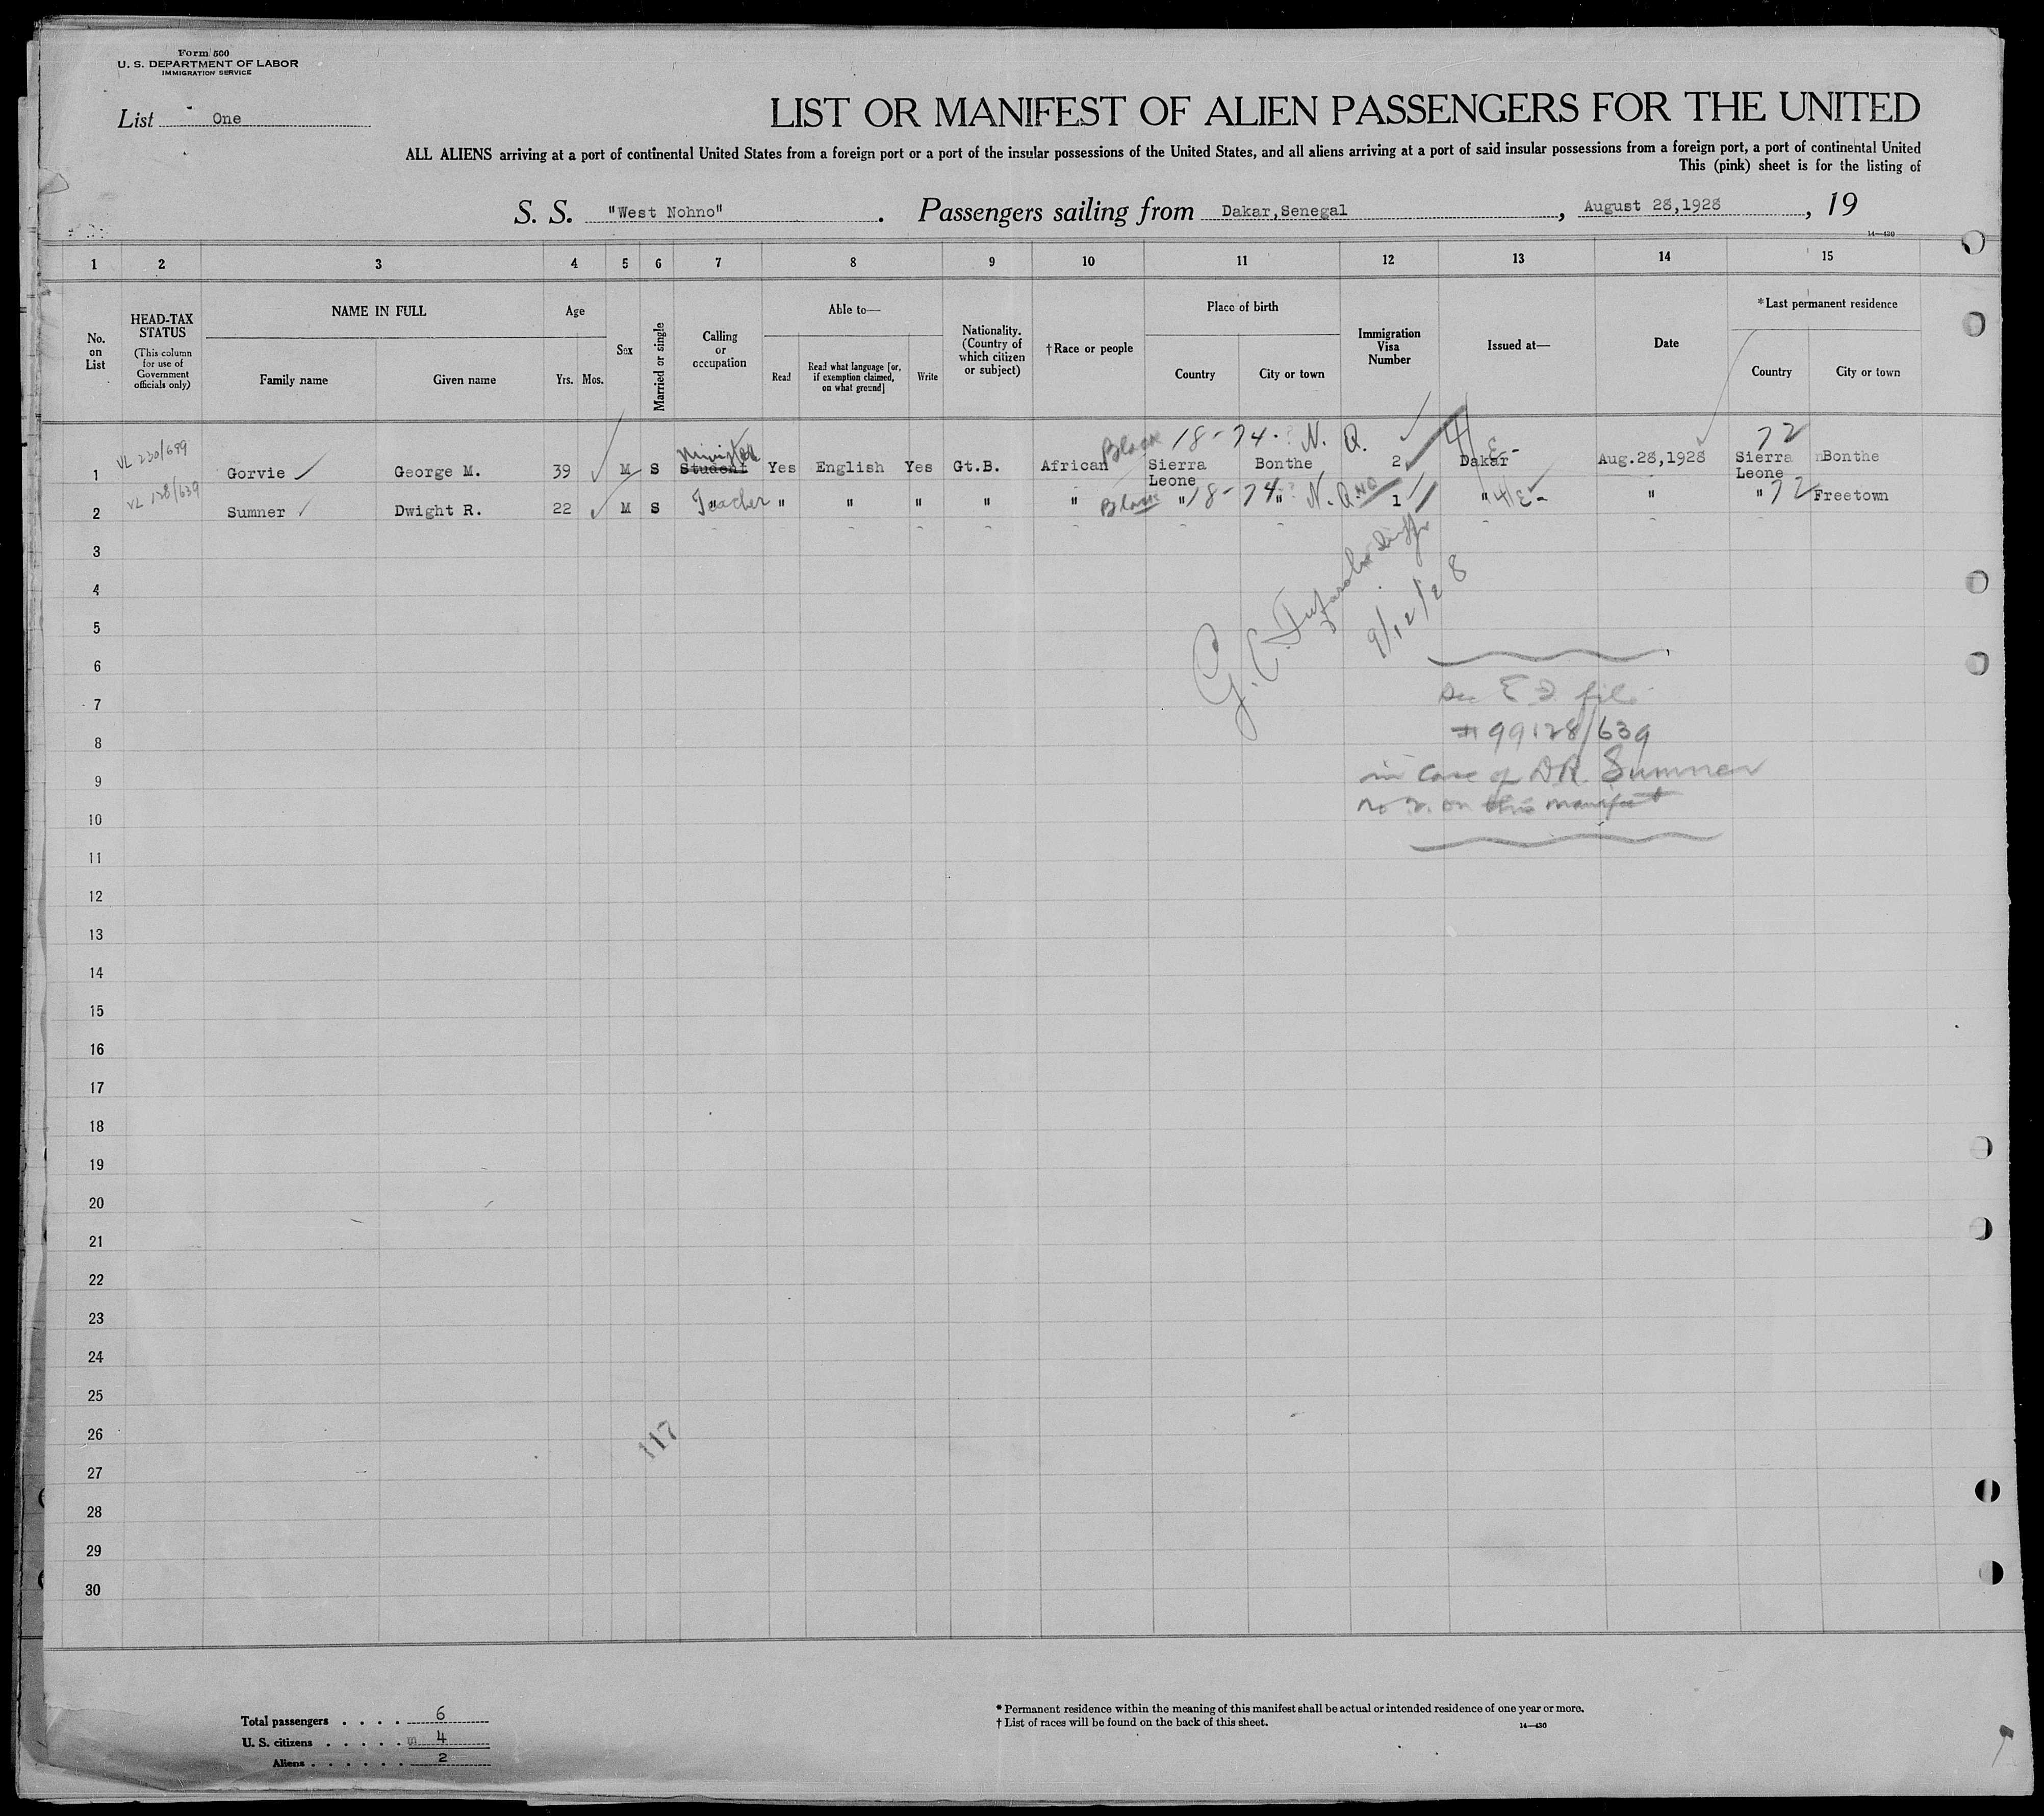 Form 500
U. S. DEPARTMENT OF LABOR
IMMIGRATION SERVICE
List One
LIST OR MANIFEST OF ALIEN PASSENGERS FOR THE UNITED
ALL ALIENS arriving at a port of continental United States from a foreign port or a port of the insular possessions of the United States, and all aliens arriving at a port of said insular possessions from a foreign port, a port of continental United
This (pink) sheet is for the listing of
S. S. "West Nohno". Passengers sailing from Dakar,Senegal, August 28,1928, 19
14—430
1 2 3 4 5 6 7 8 9 10 11 12 13 14 15
No. on List
HEAD-TAX STATUS
(This column for use of Government officials only)
NAME IN FULL
Family name Given name
Age
Yrs. Mos.
Sex
Married or single
Calling or occupation
Able to—
Read
Read what language [or, if exemption claimed, on what ground]
Write
Nationality. (Country of which citizen or subject)
†Race or people
Place of birth
Country City or town
Immigration Visa Number
Issued at—
Date
*Last permanent residence
Country City or town
Minister Black 18-74. N. Q. 4/E- 72
1 VL 230/699 Gorvie George M. 39 M S Student Yes English Yes Gt.B. African Sierra Leone Bonthe 2 Dakar Aug.28,1928 Sierra Leone Bonthe
2 VL 128/639 Sumner Dwight R. 22 M S Teacher " " " " " Black " 18-74 " N. Q. 1 " 4/E- " " 72 Freetown
3
4
5
6
7
8
9
10
11
12
13
14
15
16
17
18
19
20
21
22
23
24
25
26
27
28
29
30
G. C.
9/12/28
See file
#99128/639
in case of D.R. Sumner
No 2. on this manifest
117
Total passengers . . . . 6
U. S. citizens . . . . . 4
Aliens . . . . . . 2
* Permanent residence within the meaning of this manifest shall be actual or intended residence of one year or more.
† List of races will be found on the back of this sheet.
14—430